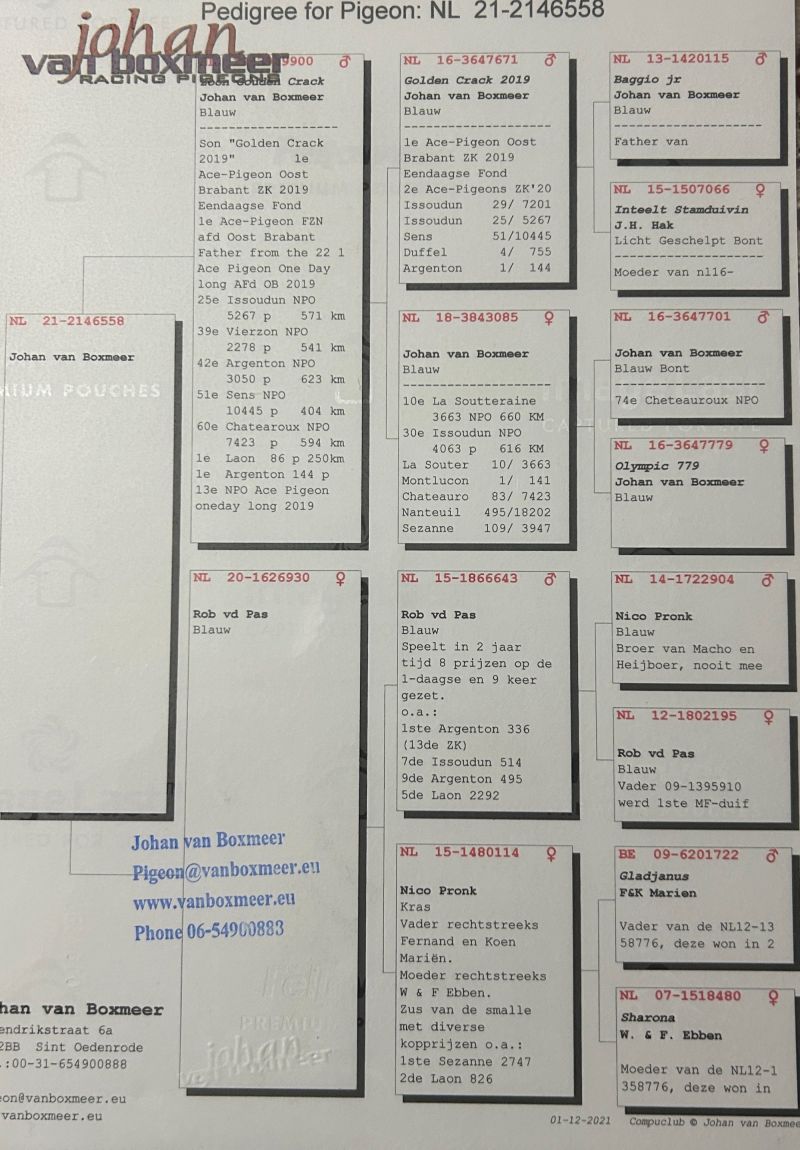 Pedigree for Pigeon: NL 21-2146558
johan
van boxmeer
RACING PIGEONS
NL 21-2146558
Johan van Boxmeer
9900 ♂
Zoon Gouden Crack
Johan van Boxmeer
Blauw
--------------------
Son "Golden Crack
2019" 1e
Ace-Pigeon Oost
Brabant ZK 2019
Eendaagse Fond
1e Ace-Pigeon FZN
afd Oost Brabant
Father from the 22 1
Ace Pigeon One Day
long AFd OB 2019
25e Issoudun NPO
5267 p 571 km
39e Vierzon NPO
2278 p 541 km
42e Argenton NPO
3050 p 623 km
51e Sens NPO
10445 p 404 km
60e Chatearoux NPO
7423 p 594 km
1e Laon 86 p 250km
1e Argenton 144 p
13e NPO Ace Pigeon
oneday long 2019
NL 20-1626930 ♀
Rob vd Pas
Blauw
NL 16-3647671 ♂
Golden Crack 2019
Johan van Boxmeer
Blauw
--------------------
1e Ace-Pigeon Oost
Brabant ZK 2019
Eendaagse Fond
2e Ace-Pigeons ZK'20
Issoudun 29/ 7201
Issoudun 25/ 5267
Sens 51/10445
Duffel 4/ 755
Argenton 1/ 144
NL 18-3843085 ♀
Johan van Boxmeer
Blauw
--------------------
10e La Soutteraine
3663 NPO 660 KM
30e Issoudun NPO
4063 p 616 KM
La Souter 10/ 3663
Montlucon 1/ 141
Chateauro 83/ 7423
Nanteuil 495/18202
Sezanne 109/ 3947
NL 15-1866643 ♂
Rob vd Pas
Blauw
Speelt in 2 jaar
tijd 8 prijzen op de
1-daagse en 9 keer
gezet.
o.a.:
1ste Argenton 336
(13de ZK)
7de Issoudun 514
9de Argenton 495
5de Laon 2292
NL 15-1480114 ♀
Nico Pronk
Kras
Vader rechtstreeks
Fernand en Koen
Mariën.
Moeder rechtstreeks
W & F Ebben.
Zus van de smalle
met diverse
kopprijzen o.a.:
1ste Sezanne 2747
2de Laon 826
NL 13-1420115 ♂
Baggio jr
Johan van Boxmeer
Blauw
--------------------
Father van
NL 15-1507066 ♀
Inteelt Stamduivin
J.H. Hak
Licht Geschelpt Bont
--------------------
Moeder van nl16-
NL 16-3647701 ♂
Johan van Boxmeer
Blauw Bont
--------------------
74e Cheteauroux NPO
NL 16-3647779 ♀
Olympic 779
Johan van Boxmeer
Blauw
NL 14-1722904 ♂
Nico Pronk
Blauw
Broer van Macho en
Heijboer, nooit mee
NL 12-1802195 ♀
Rob vd Pas
Blauw
Vader 09-1395910
werd 1ste MF-duif
BE 09-6201722 ♂
Gladjanus
F&K Marien
Vader van de NL12-13
58776, deze won in 2
NL 07-1518480 ♀
Sharona
W. & F. Ebben
Moeder van de NL12-1
358776, deze won in
Johan van Boxmeer
Pigeon@vanboxmeer.eu
www.vanboxmeer.eu
Phone 06-54900883
han van Boxmeer
endrikstraat 6a
2BB Sint Oedenrode
.:00-31-654900888
eon@vanboxmeer.eu
vanboxmeer.eu
01-12-2021 Compuclub © Johan van Boxmee
MIUM POUCHES